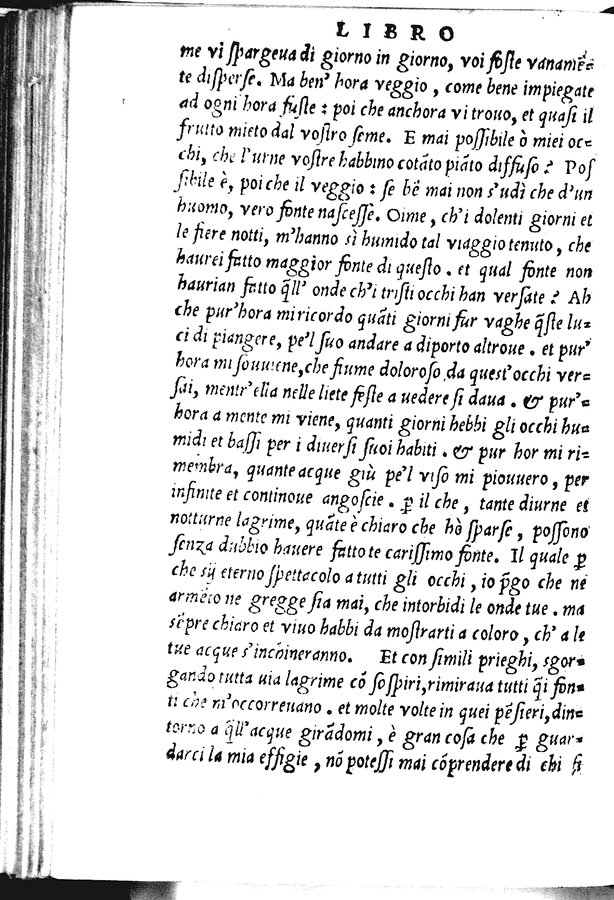 LIBRO
me vi ſpargeua di giorno in giorno, voi foſte vanamẽ=
te diſperſe. Ma ben' hora veggio, come bene impiegate
ad ogni hora fuſte : poi che anchora vi trouo, et quaſi il
frutto mieto dal voſtro ſeme. E mai poſſibile ò miei oc=
chi, che l'urne voſtre habbino cotãto piãto diffuſo ? Poſ
ſibile è, poi che il veggio : ſe bẽ mai non s'udì che d'un
huomo, vero fonte naſceſſe. Oime, ch'i dolenti giorni et
le fiere notti, m'hanno sì humido tal viaggio tenuto, che
haurei fatto maggior fonte di queſto. et qual fonte non
haurian fatto q̃ll' onde ch'i triſti occhi han verſate ? Ah
che pur'hora mi ricordo quãti giorni fur vaghe q̃ſte lu=
ci di piangere, pe'l ſuo andare a diporto altroue. et pur'
hora mi ſouuiene, che fiume doloroſo da queſt'occhi ver=
ſai, mentr'ella nelle liete feſte a uedere ſi daua. & pur'=
hora a mente mi viene, quanti giorni hebbi gli occhi hu=
midi et baſſi per i diuerſi ſuoi habiti. & pur hor mi ri=
membra, quante acque giù pe'l viſo mi piouuero, per
infinite et continoue angoſcie. ꝑ il che, tante diurne et
notturne lagrime, quãte è chiaro che hò ſparſe, poſſono
ſenza dubbio hauere fatto te cariſſimo fonte. Il quale ꝑ
che ſij eterno ſpettacolo a tutti gli occhi, io p̃go che ne
armẽto ne gregge ſia mai, che intorbidi le onde tue. ma
sẽpre chiaro et viuo habbi da moſtrarti a coloro, ch' a le
tue acque s'inchineranno. Et con ſimili prieghi, sgor=
gando tutta uia lagrime cõ ſoſpiri, rimiraua tutti q̃i fon=
ti che m'occorreuano. et molte volte in quei pẽſieri, din=
torno a q̃ll'acque girãdomi, è gran coſa che ꝑ guar=
darci la mia effigie, nõ poteſſi mai cõprendere di chi ſi